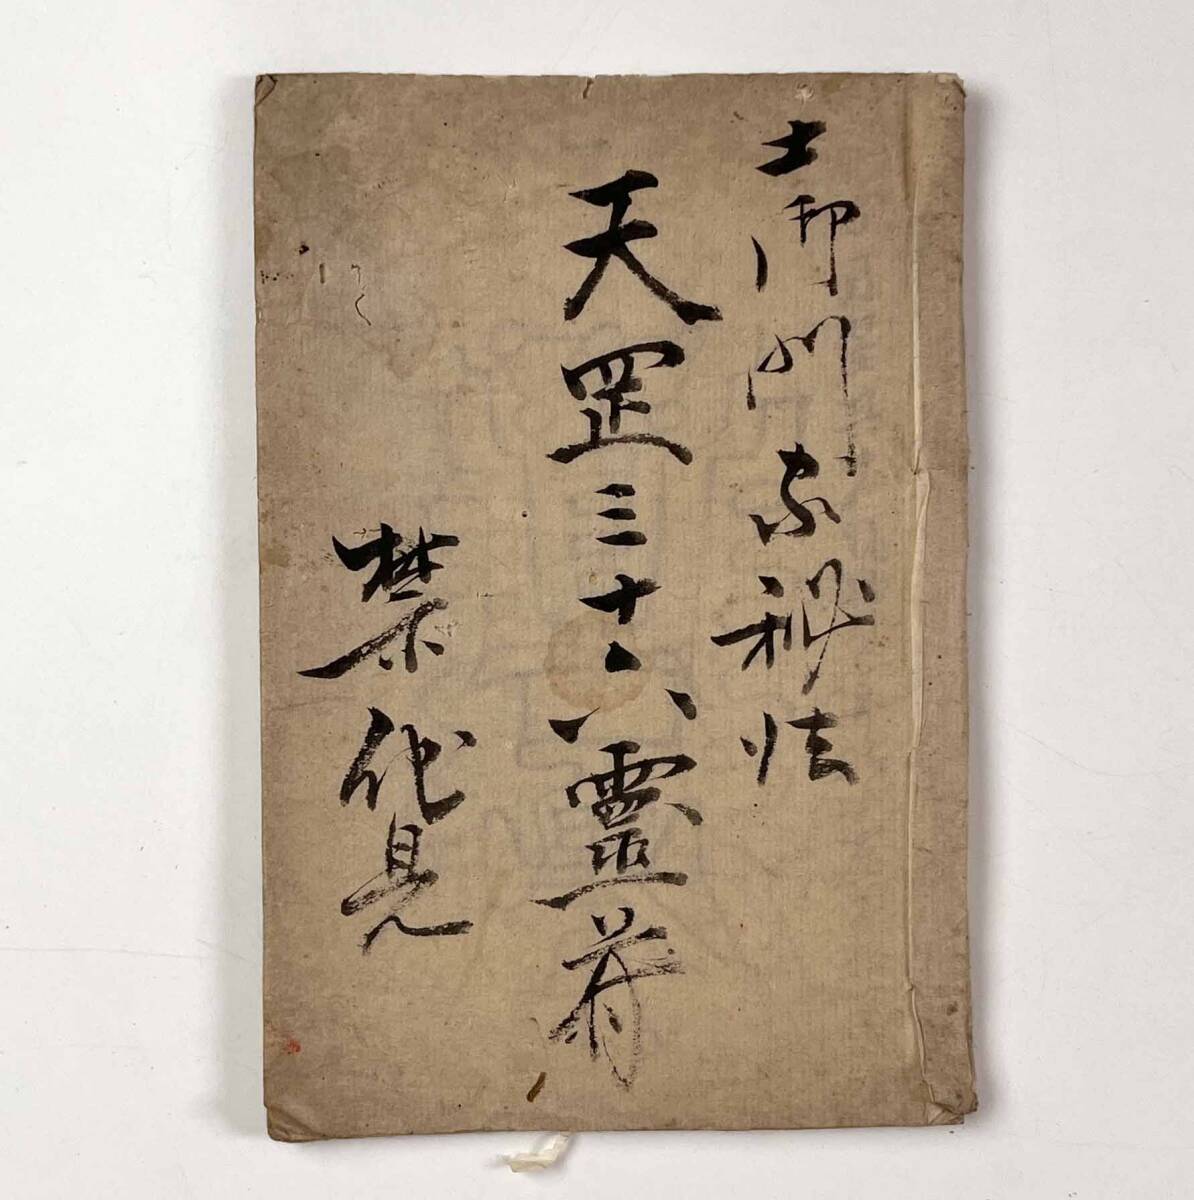 土御門家秘法
天罡三十六靈符
禁他見